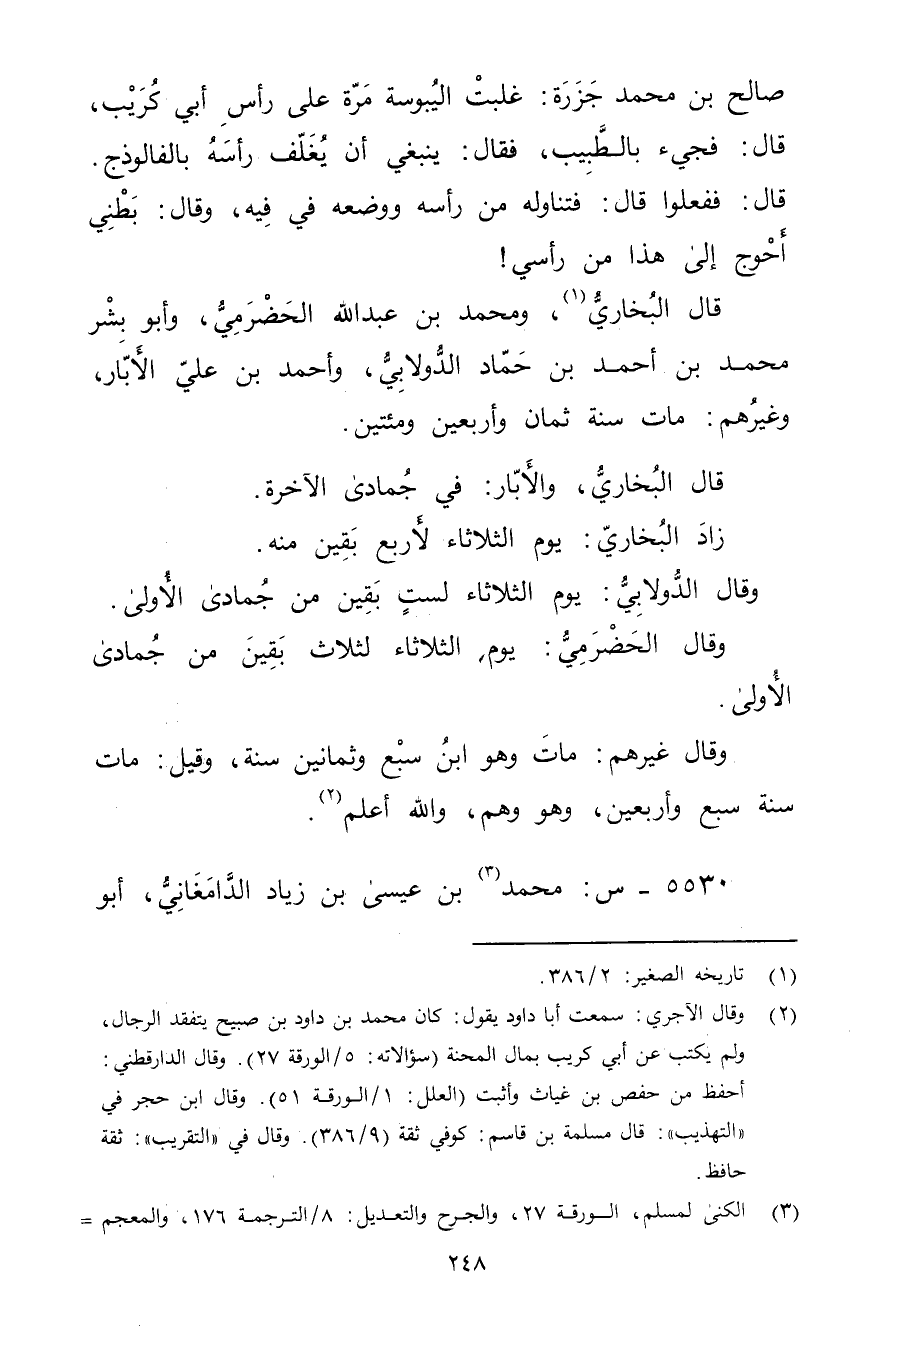 صالح بن محمد جَزَرَة: غلبتْ اليُبوسة مَرّة على رأسِ أبي كُرَيْب،
قال: فجيء بالطَّبِيب، فقال: ينبغي أن يُغَلّف رأسَهُ بالفالوذج.
قال: ففعلوا قال: فتناوله من رأسه ووضعه في فِيه، وقال: بَطْنِي
أَحْوج إلىٰ هذا من رأسي!
قال البُخاريُّ(١)، ومحمد بن عبدالله الحَضْرَمِيُّ، وأبو بِشْر
محمد بن أحمد بن حَمّاد الدُّولابِيُّ، وأحمد بن عليّ الأَبّار،
وغيرُهم: مات سنة ثمان وأربعين ومئتين.
قال البُخاريُّ، والأَبّار: في جُمادىٰ الآخرة.
زادَ البُخاريّ: يوم الثلاثاء لأَربع بَقِين منه.
وقال الدُّولابِيُّ: يوم الثلاثاء لستٍ بَقِين من جُمادىٰ الأُولىٰ.
وقال الحَضْرَمِيُّ: يوم الثلاثاء لثلاث بَقِينَ من جُمادىٰ
الأُولىٰ.
وقال غيرهم: ماتَ وهو ابنُ سبْع وثمانين سنة، وقيل: مات
سنة سبع وأربعين، وهو وهم، والله أعلم(٢).
٥٥٣٠ - س: محمد(٣) بن عيسىٰ بن زياد الدَّامَغَانِيُّ، أبو
(١) تاريخه الصغير: ٣٨٦/٢.
(٢) وقال الآجري: سمعت أبا داود يقول: كان محمد بن داود بن صبيح يتفقد الرجال،
ولم يكتب عن أبي كريب بمال المحنة (سؤالاته: ٥/الورقة ٢٧). وقال الدارقطني:
أحفظ من حفص بن غياث وأثبت (العلل: ١/الورقة ٥١). وقال ابن حجر في
«التهذيب»: قال مسلمة بن قاسم: كوفي ثقة (٣٨٦/٩). وقال في «التقريب»: ثقة
حافظ.
(٣) الكنىٰ لمسلم، الورقة ٢٧، والجرح والتعديل: ٨/الترجمة ١٧٦، والمعجم =
٢٤٨